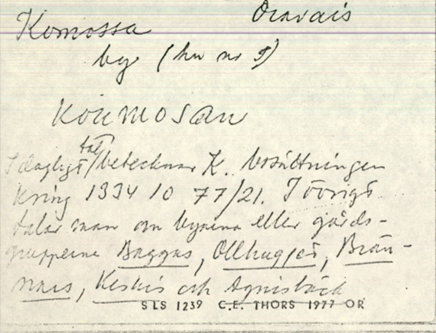 Komossa Oravais
by (hn nr 9)
koumosan
I dagligt tal betecknar K. bosättningen
kring 1334 10 77/21. I övrigt
talar man om byarna eller gårds-
grupperna Baggas, Ollhugget, Brän-
nars, Keskis och Agnisbäck
SLS 1239 C.E. THORS 1977 OR